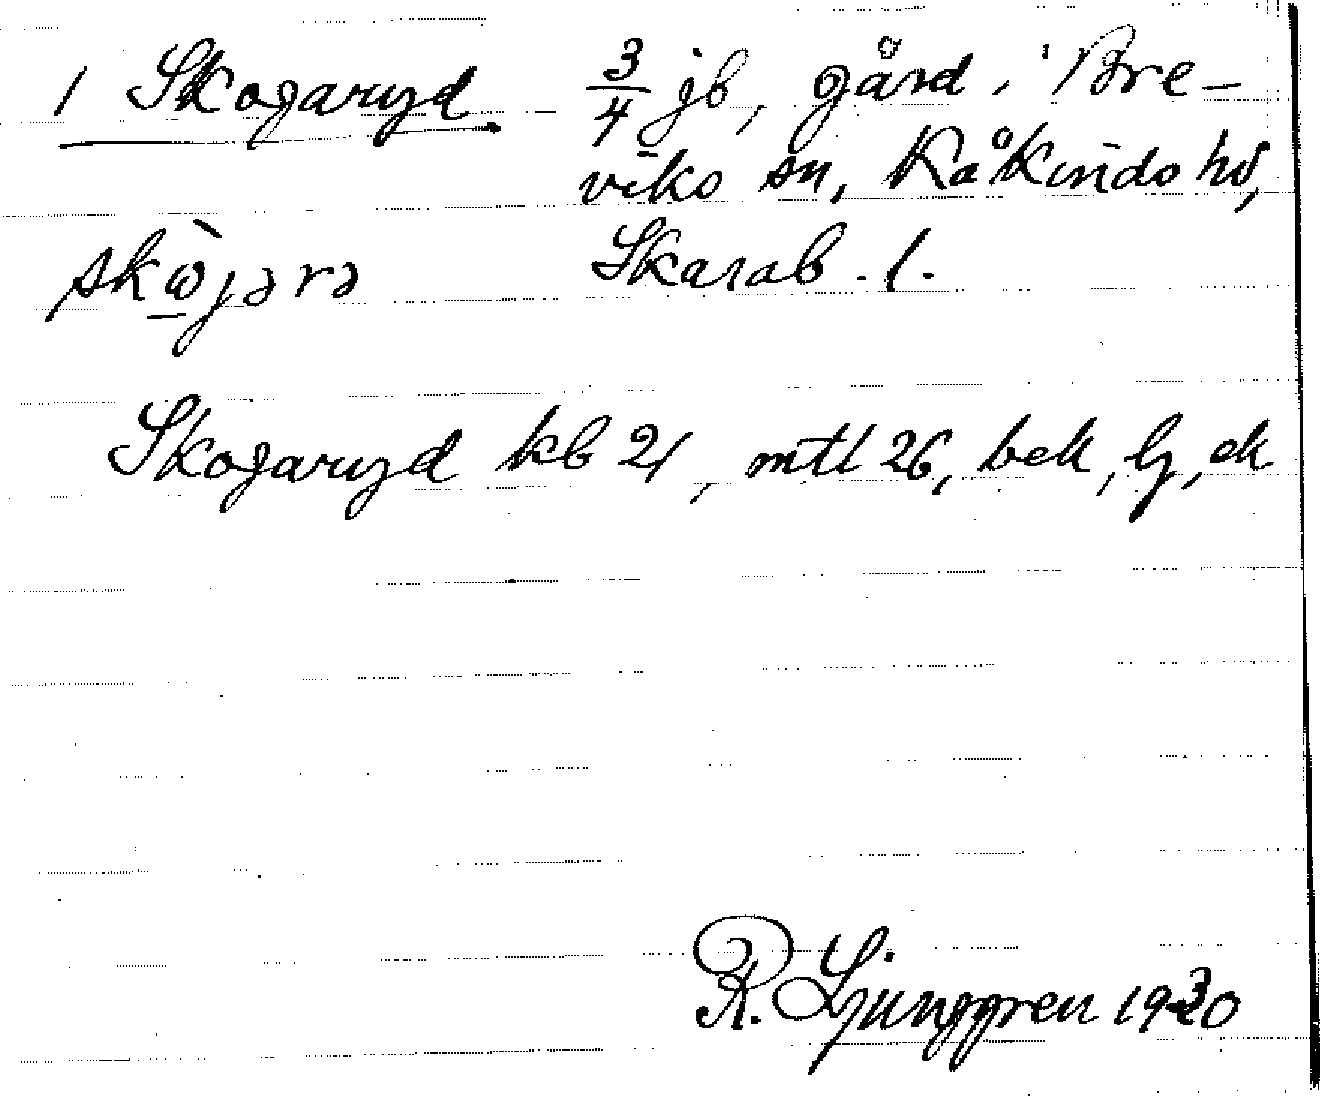 1 Skogaryd. 3/4 jb, gård i Bre-
viks sn, Kåkinds hd,
skɷ̀jərə Skarab. l.
Skogaryd kb 21, mtl 26, bek, lj, ek
R. Ljunggren 1930